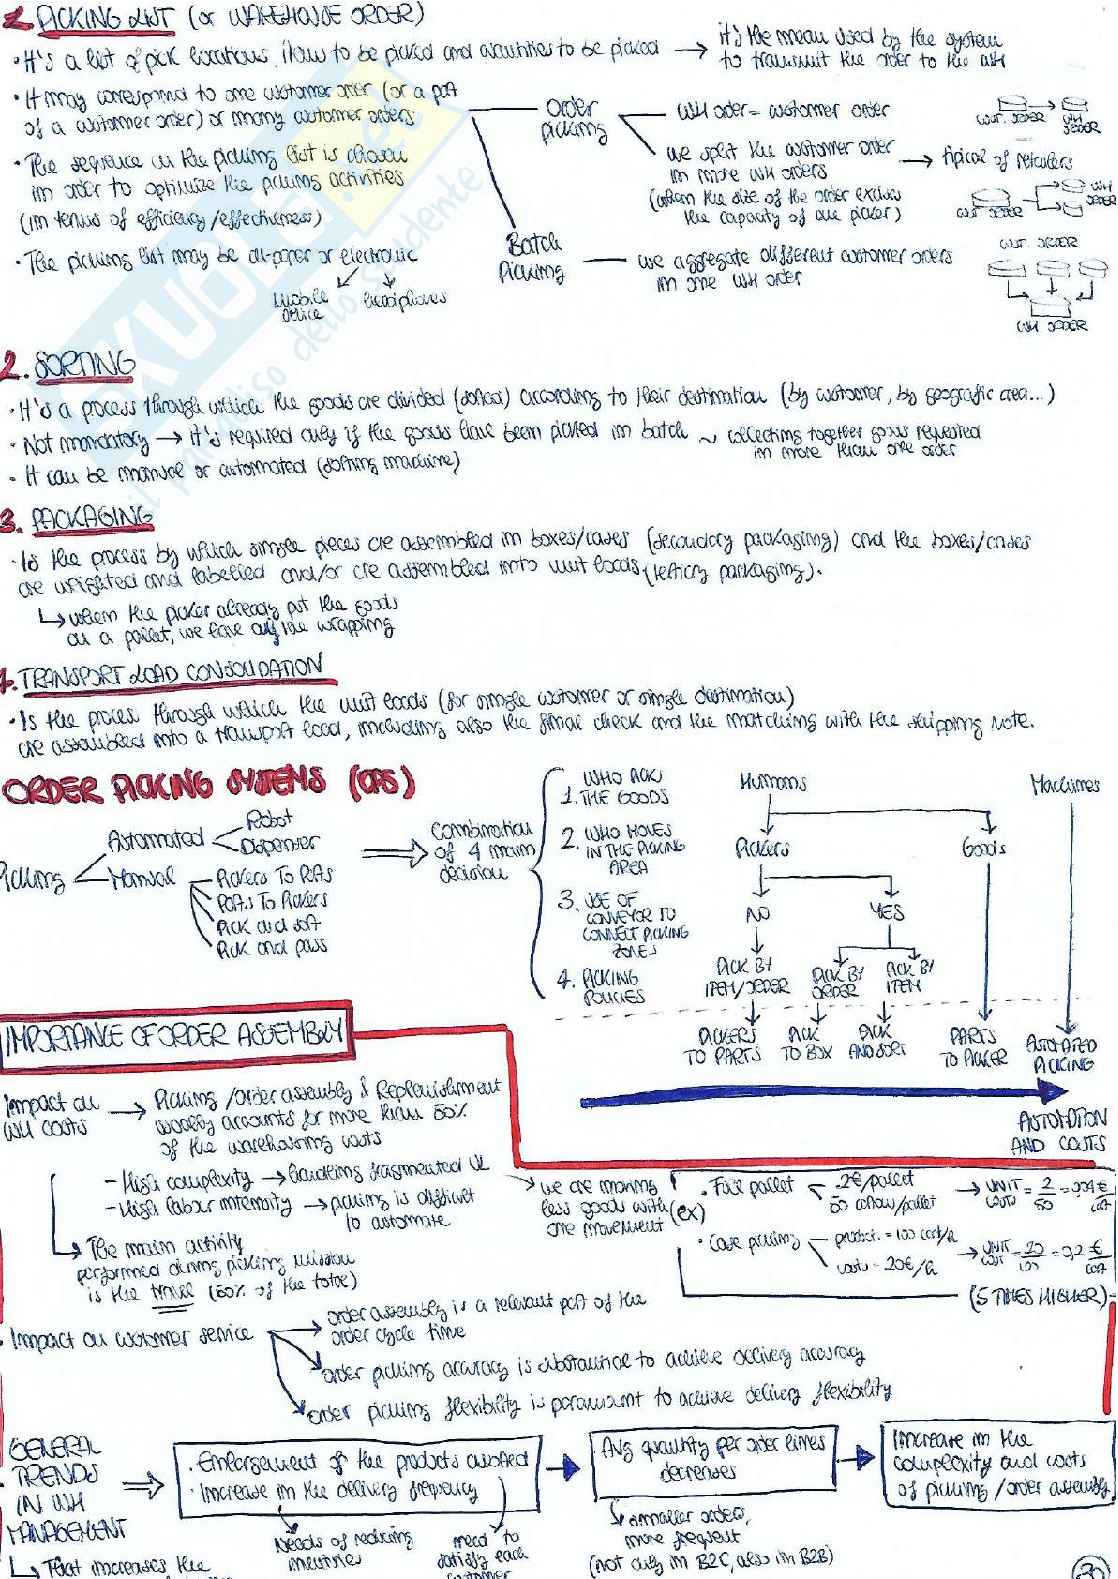 1. PICKING LIST (or WAREHOUSE ORDER)
· It's a list of pick locations, items to be picked and quantities to be picked → it's the mean used by the system
to transmit the order to the WH
· It may correspond to one customer order (or a part
of a customer order) or many customer orders
· The sequence in the picking list is chosen
in order to optimize the picking activities
(in terms of efficiency/effectiveness)
· The picking list may be on-paper or electronic
mobile device
headphones
Order picking
WH order = customer order
CUST. ORDER → WH ORDER
we split the customer order
in more WH orders
(when the size of the order excedes
the capacity of one picker)
→ tipical of retailers
CUST. ORDER
WH ORDER
Batch picking
we aggregate different customer orders
in one WH order
CUST. ORDER
WH ORDER
2. SORTING
· It's a process through which the goods are divided (sorted) according to their destination (by customer, by geografic area...)
· Not mandatory → it's required only if the goods have been picked in batch ~ collecting together goods requested
in more than one order
· It can be manual or automated (sorting machine)
3. PACKAGING
· Is the process by which single pieces are assembled in boxes/cases (secondary packaging) and the boxes/cases
are weighted and labelled and/or are assembled into unit loads (tertiary packaging).
↳ when the picker already put the goods
on a pallet, we have only the wrapping
4. TRANSPORT LOAD CONSOLIDATION
· Is the process through which the unit loads (for single customer or single destination)
are assembled into a transport load, including also the final check and the matching with the shipping note.
ORDER PICKING SYSTEMS (OPS)
Picking
Automated
Robot
Dispenser
Manual
Pickers to parts
Parts to pickers
Pick and sort
Pick and pass
Combination
of 4 main
decision
1. WHO PICK
THE GOODS
2. WHO MOVES
IN THE PICKING
AREA
3. USE OF
CONVEYOR TO
CONNECT PICKING
ZONES
4. PICKING
POLICIES
Humans
Machines
Pickers
Goods
NO
YES
PICK BY
ITEM/ORDER
PICK BY
ORDER
PICK BY
ITEM
PICKERS
TO PARTS
PICK
TO BOX
PICK
AND SORT
PARTS
TO PICKER
AUTOMATED
PICKING
AUTOMATION
AND COSTS
IMPORTANCE OF ORDER ASSEMBLY
Impact on
WH costs
→ Picking/order assembly & Replenishment
usually accounts for more than 50%
of the warehousing costs
- High complexity → handling fragmented UL
- High labour intensity → picking is difficult
to automate
→ we are moving
less goods with
one movement
↳ The main activity
performed during picking mission
is the travel (50% of the total)
(ex)
· Full pallet
2€/pallet
50 cartons/pallet
→ UNIT COST = 2/50 = 0,04 €/cart
· Case picking
product. = 100 cart/h
costs = 20€/h
→ UNIT COST = 20/100 = 0,2 €/cart
(5 TIMES HIGHER)
· Impact on customer service
order assembly is a relevant part of the
order cycle time
order picking accuracy is substantial to achieve delivery accuracy
order picking flexibility is paramount to achieve delivery flexibility
GENERAL
TRENDS
IN WH
MANAGEMENT
· Enlargement of the products assorted
· Increase in the delivery frequency
Needs of reducing
need to
satisfy each
customer
Avg quantity per order lines
decreases
↳ smaller orders,
more frequent
(not only in B2C, also in B2B)
Increase in the
complexity and costs
of picking/order assembly
↳ That increases the
30
SKUOLA.net
il paradiso dello studente